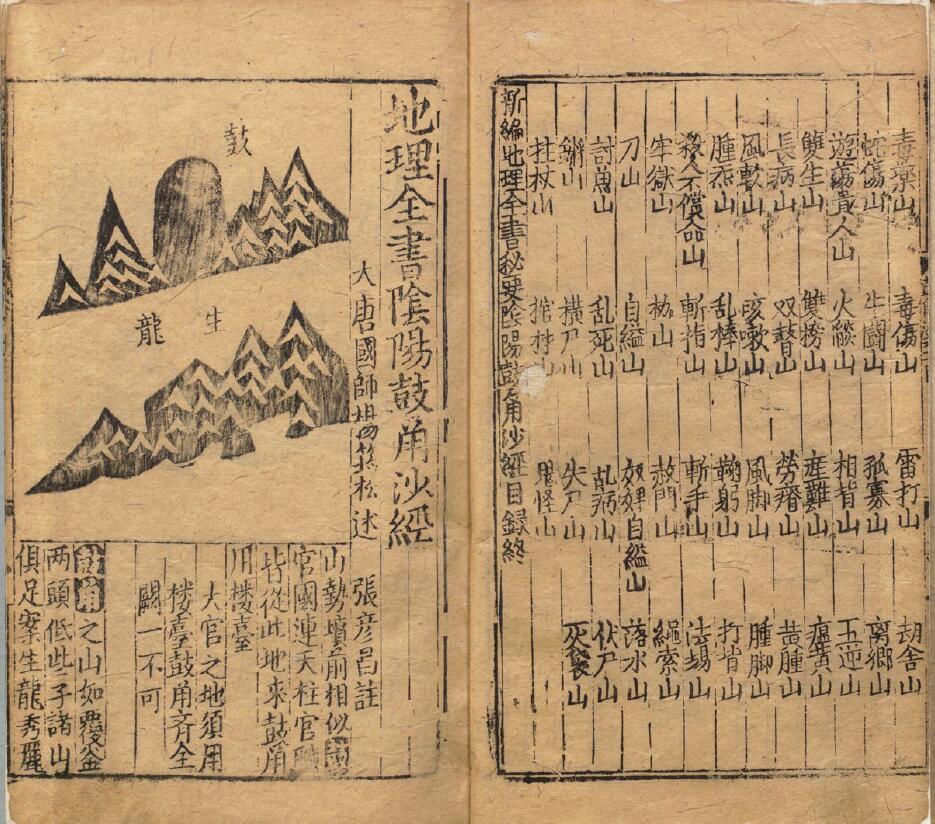 毒藥山 毒傷山 雷打山 刼舍山
蛇傷山 牛鬪山 孤寡山 离郷山
遊蕩貴人山 火燄山 相背山 五逆山
雙生山 雙榜山 産難山 瘟黄山
長病山 双瞽山 勞瘠山 黄腫山
風軟山 咳嗽山 風脚山 腫脚山
腫炁山 乱棒山 鞠躬山 打背山
殺人不償命山 斬指山 斬手山 法場山
牢獄山 枷山 赦門山 繩索山
刀山 自縊山 奴婢自縊山 落水山
討魚山 乱死山 乱病山 伏尸山
山 横尸山 失尸山 灰袋山
拄杖山 棺材山 鬼怪山
新編地理全書秘要陰陽鼓角沙經目録終
地理全書陰陽鼓角沙經
大唐國師楊筠松述
鼓
生龍
張彦昌註
山勢墳前相似
官國連天柱官職
皆從此地來鼓角
用楼臺
大官之地須用
楼臺鼓角齐全
闕一不可
鼓角之山如覆釜
两頭低此子諸山
俱足案生龍秀麗